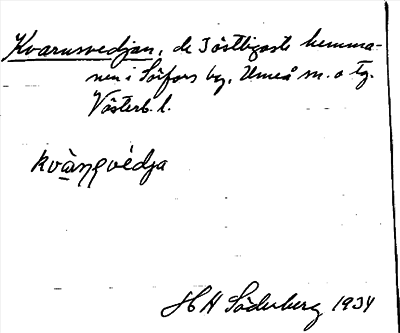 Kvarnsvedjan, de 3 östligaste hemma-
nen i Sörfors by, Umeå sn. o tg.
Västerb. l.
kvàŋ̣svédja
H Söderberg 1934